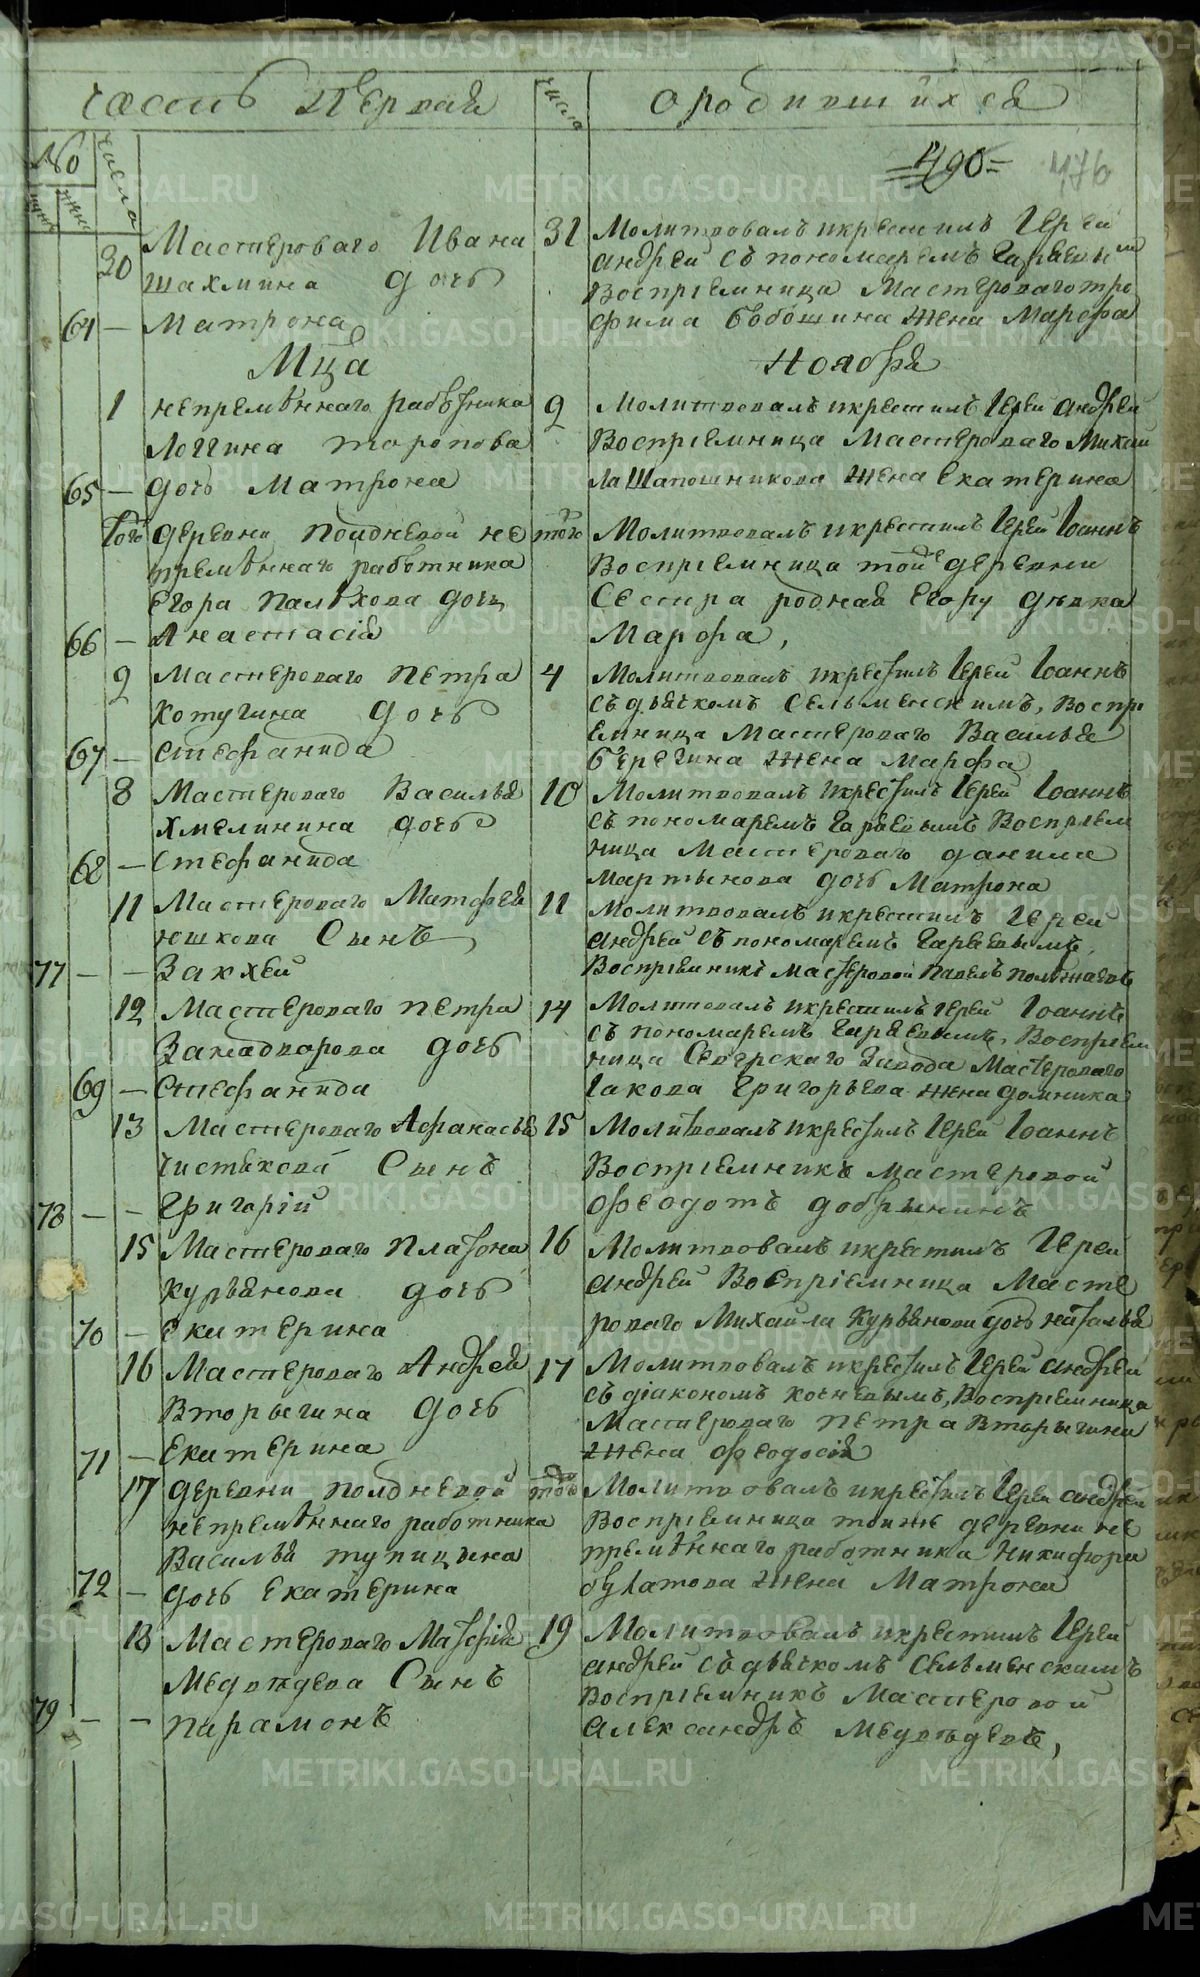 METRIKI.GASO-URAL.RU
часть Первая
числа
о родившихся
№
числа
муж
жен
490
476
30 Мастероваго Ивана
шахмина дочь
64 — Матрона
31 Молитвовалъ и крестилъ Іерей
андрей съ пономаремъ Гаряевым
Воспріемница Мастероваго тро
фима бабошина жена Марфа
Мца Ноября
1 непремѣннаго работника
Логгина торопова
65 — дочь Матрона
2 Молитвовалъ и крестилъ Іерей андрей
Воспріемница Мастероваго Михаи
ла Шапошникова жена екатерина
того деревни полдневой не
премѣннаго работника
егора палѣхова дочь
66 — Анастасія
того Молитвовалъ и крестилъ Іерей Іоаннъ
Воспріемница той деревни
Сестра родная егору дѣвка
Марфа,
2 Мастероваго петра
котугина дочь
67 — стефанида
4 Молитвовалъ и крестилъ Іерей Іоаннъ
съ дьячкомъ Сельменскимъ, Воспрі
емница Мастероваго Василья
берегина жена Марфа
8 Мастероваго Василья
хмелинина дочь
68 — стефанида
10 Молитвовалъ и крестилъ Іерей Іоаннъ
съ пономаремъ Гаряевымъ Воспріем
ница Мастероваго данила
мартынова дочь Матрона
11 Мастероваго Матфея
юшкова Сынъ
77 — — Закхей
11 Молитвовалъ и крестилъ Іерей
андрей съ пономаремъ Гаряевымъ,
Воспріемникъ мастеровой павелъ
12 Мастероваго петра
Занадворова дочь
69 — стефанида
14 Молитвовалъ и крестилъ Іерей Іоаннъ
съ пономаремъ Гаряевымъ, Воспріем
ница Северскаго Завода Мастероваго
Іакова Григорьева жена домника
13 Мастероваго Афанасья
чистякова Сынъ
78 — — Григорій
15 Молитвовалъ и крестилъ Іерей Іоаннъ
Воспріемникъ мастеровой
феодотъ добрынинъ
15 Мастероваго платона
курьянова дочь
70 — екатерина
16 Молитвовалъ и крестилъ Іерей
андрей Воспріемница Масте
роваго Михайла курьянова дочь наталья
16 Мастероваго Андрея
Вторыгина дочь
71 — екатерина
17 Молитвовалъ и крестилъ Іерей андрей
съ діакономъ Воспріемница
Мастероваго петра Вторыгина
жена феодосія
17 деревни полдневой
непремѣннаго работника
Василья тупицына
72 — дочь екатерина
того Молитвовалъ и крестилъ Іерей андрей
Воспріемница тойже деревни не
премѣннаго работника никифора
булатова жена Матрона
18 Мастероваго Матфія
медведева Сынъ
79 — — парамонъ
19 Молитвовалъ и крестилъ Іерей
андрей съ дьячкомъ Сельменскимъ
воспріемникъ Мастеровой
александръ медведевъ,